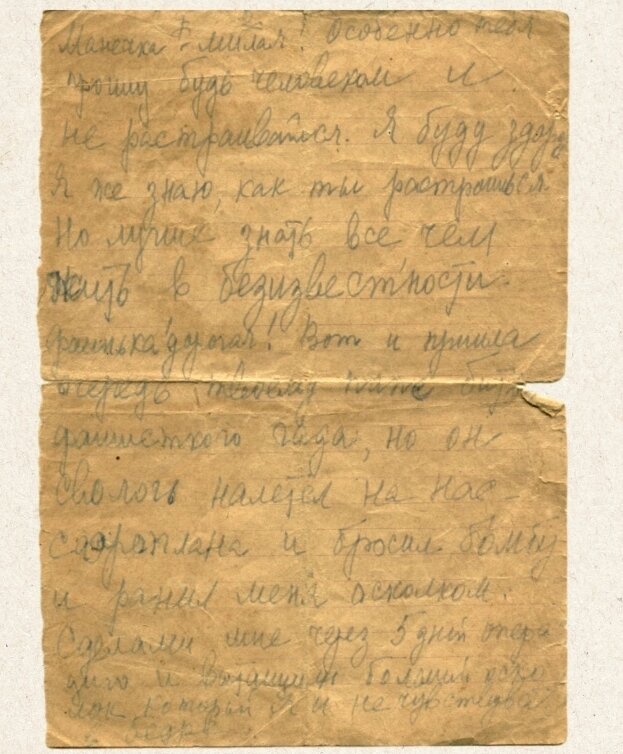 Манечка! милая! Особенно тебя
прошу будь человеком и
не растраивайся. Я буду здоров
Я же знаю, как ты растроишься
Но лучше знать все чем
жить в безизвестности.
Фанинька дорогая! Вот и пришла
очередь твоему папке бить
фашисткого гада, но он
сволочь налетел на нас
с аэроплана и бросил бомбу
и ранил меня осколком.
Сделали мне через 5 дней опера
цию и вытащили большой оско
лок который я и не чувствовал